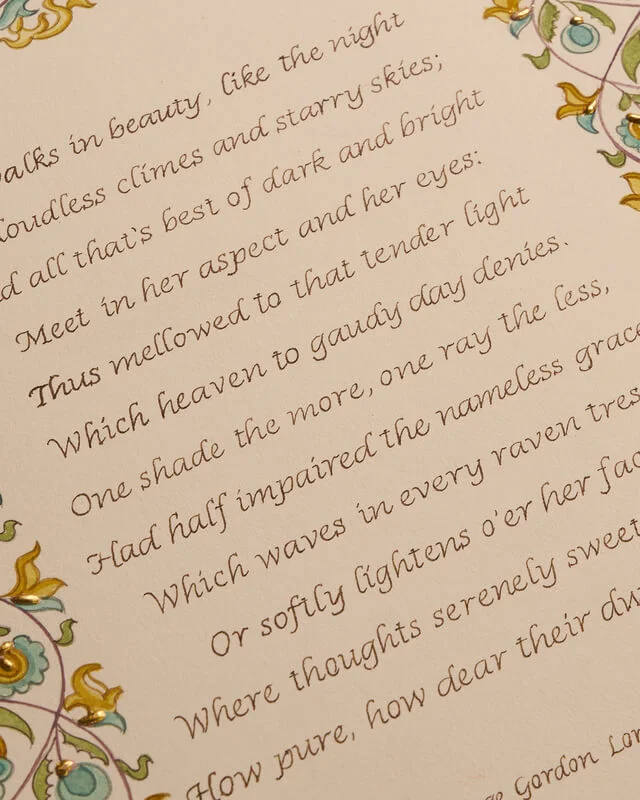 walks in beauty, like the night
cloudless climes and starry skies;
and all that's best of dark and bright
Meet in her aspect and her eyes:
Thus mellowed to that tender light
Which heaven to gaudy day denies.
One shade the more, one ray the less,
Had half impaired the nameless grace
Which waves in every raven tres
Or softly lightens o'er her fac
Where thoughts serenely sweet
How pure, how dear their dw
Gordon Lor